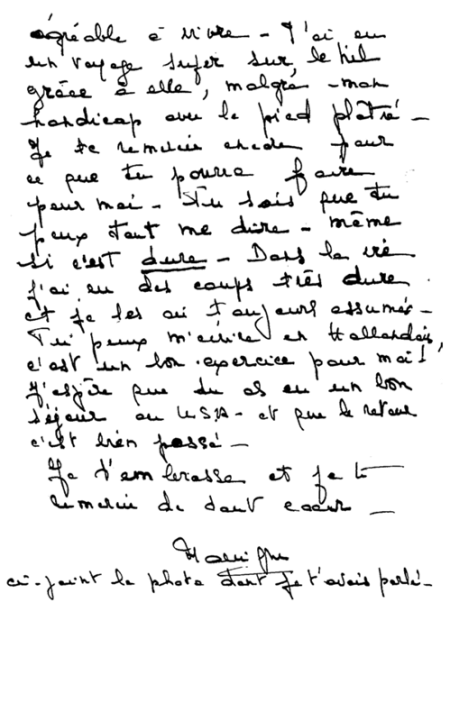 agréable à vivre - J'ai eu
un voyage super sur le Nil
grâce à elle, malgré - mon
handicap avec le pied plâtré -
Je te remercie encore pour
ce que tu pourra faire
pour moi - Tu sais que tu
peux tout me dire - même
si c'est dure - Dans la vie
j'ai eu des coups très dure
et je les ai toujours assumés -
Tu peux m'écrire en Hollandais,
c'est un bon exercice pour moi!
J'espère que tu as eu un bon
séjour au USA - et que le retour
c'est bien passé -
Je t'embrasse et je te
remercie de tout coeur -
ci-joint la photo dont je t'avais parlé -